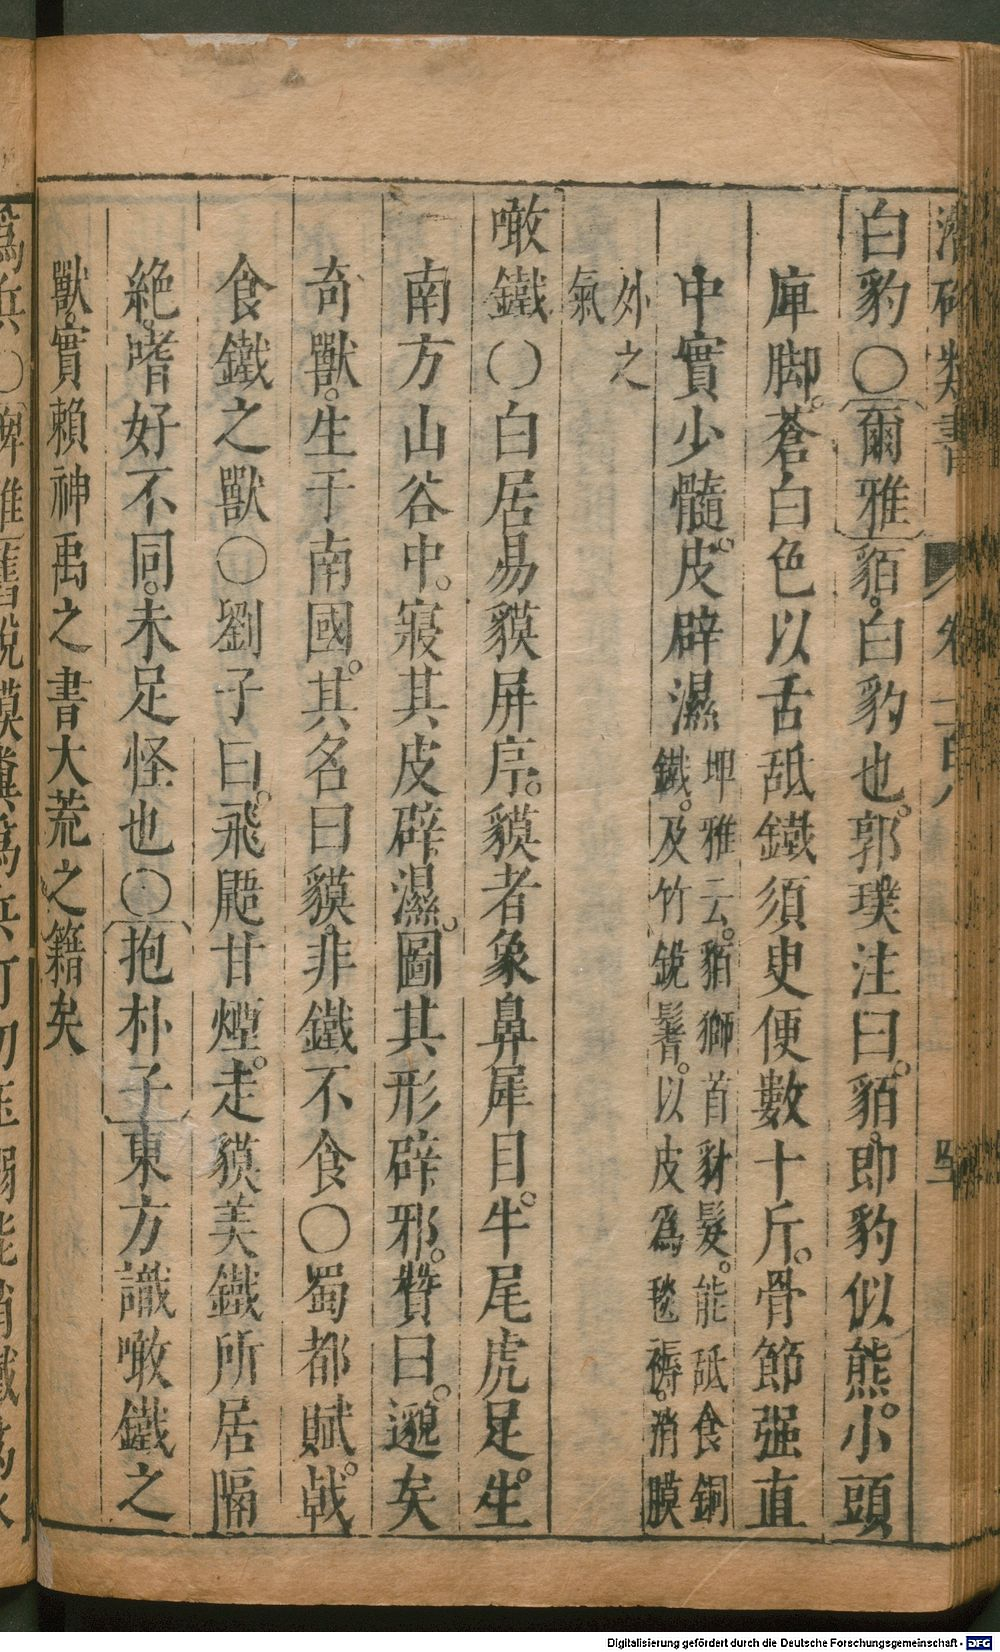 潛確類書 卷一百八 四
白豹〇爾雅貊。白豹也。郭璞注曰。貊。即豹似熊。小頭
庳脚。蒼白色以舌舐鐵須臾便數十斤。骨節强直
中實少髓。皮辟濕
埤雅云。貊獅首豺髮。能舐食銅
鐵。及竹銳鬐。以皮爲毯褥。消膜
外之
氣
噉鐵〇白居易貘屏序。貘者象鼻犀目。牛尾虎足。生
南方山谷中。寢其皮辟濕。圖其形辟邪。贊曰。邈矣
奇獸。生于南國。其名曰貘。非鐵不食〇蜀都賦。戟
食鐵之獸〇劉子曰。飛鼯甘煙。走貘美鐵所居隔
絶。嗜好不同。未足怪也〇抱朴子東方識噉鐵之
獸。實賴神禹之書大荒之籍矣
Digitalisierung gefördert durch die Deutsche Forschungsgemeinschaft - DFG